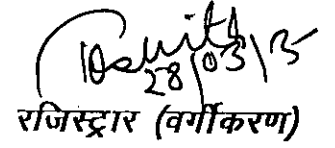 28/03/13
रजिस्ट्रार (वर्गीकरण)